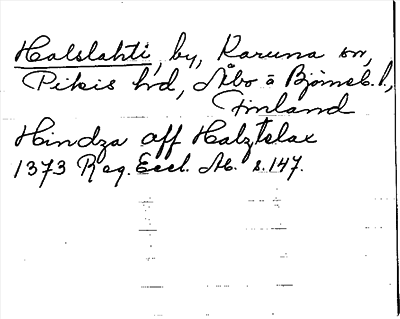 Halslahti, by, Karuna sn,
Pikis hd, Åbo o Björneb. l.,
Finland
Hindza aff Halztelax
1373 Reg. Eccl. Ab. s. 147.